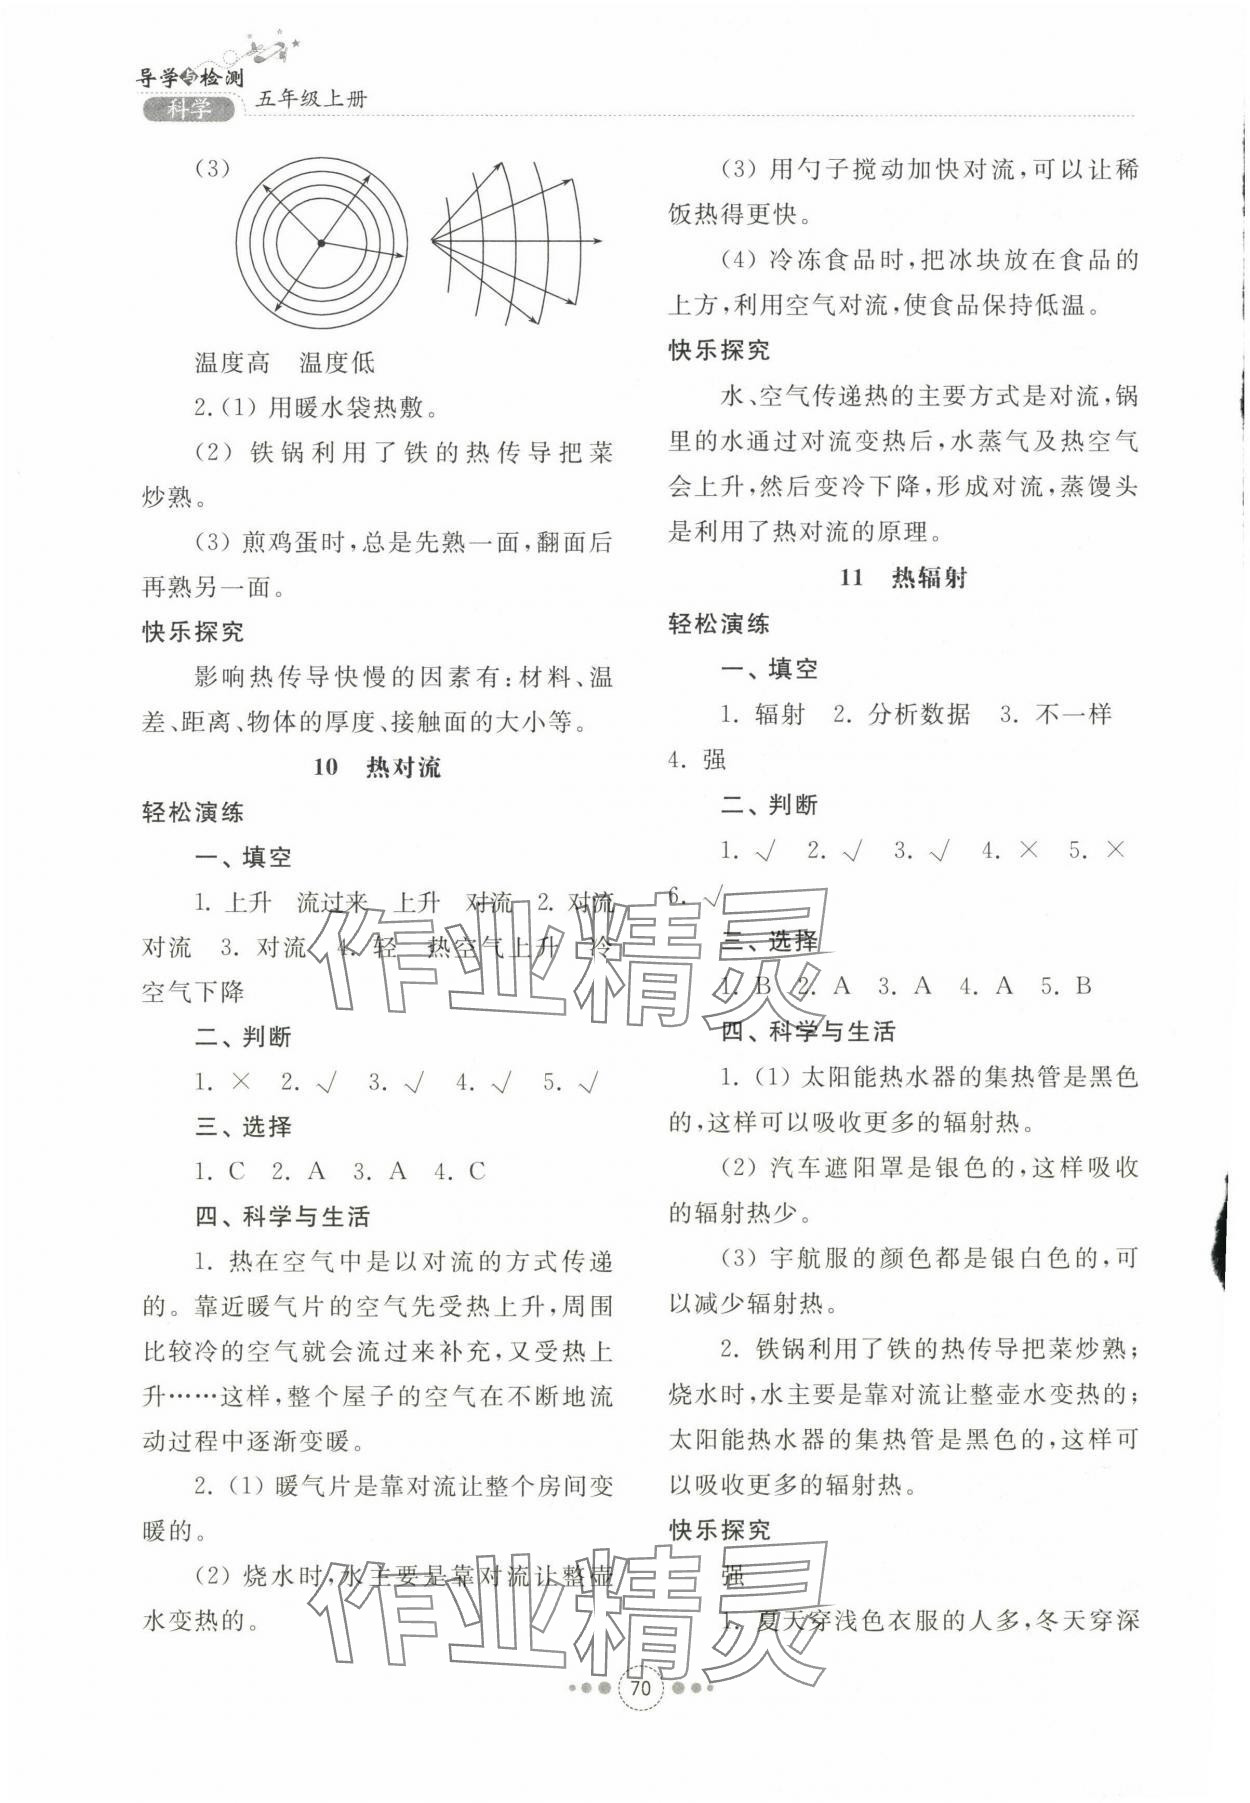 导学与检测
科学
五年级上册
(3)
温度高　温度低
2.(1) 用暖水袋热敷。
(2) 铁锅利用了铁的热传导把菜
炒熟。
(3) 煎鸡蛋时,总是先熟一面,翻面后
再熟另一面。
快乐探究
影响热传导快慢的因素有:材料、温
差、距离、物体的厚度、接触面的大小等。
10　热对流
轻松演练
一、填空
1. 上升　流过来　上升　对流　2. 对流
对流　3. 对流　4. 轻　热空气上升　冷
空气下降
二、判断
1. ×　2. √　3. √　4. √　5. √
三、选择
1. C　2. A　3. A　4. C
四、科学与生活
1. 热在空气中是以对流的方式传递
的。靠近暖气片的空气先受热上升,周围
比较冷的空气就会流过来补充,又受热上
升……这样,整个屋子的空气在不断地流
动过程中逐渐变暖。
2.(1) 暖气片是靠对流让整个房间变
暖的。
(2) 烧水时,水主要是靠对流让整壶
水变热的。
(3) 用勺子搅动加快对流,可以让稀
饭热得更快。
(4) 冷冻食品时,把冰块放在食品的
上方,利用空气对流,使食品保持低温。
快乐探究
水、空气传递热的主要方式是对流,锅
里的水通过对流变热后,水蒸气及热空气
会上升,然后变冷下降,形成对流,蒸馒头
是利用了热对流的原理。
11　热辐射
轻松演练
一、填空
1. 辐射　2. 分析数据　3. 不一样
4. 强
二、判断
1. √　2. √　3. √　4. ×　5. ×
6. √
三、选择
1. B　2. A　3. A　4. A　5. B
四、科学与生活
1.(1) 太阳能热水器的集热管是黑色
的,这样可以吸收更多的辐射热。
(2) 汽车遮阳罩是银色的,这样吸收
的辐射热少。
(3) 宇航服的颜色都是银白色的,可
以减少辐射热。
2. 铁锅利用了铁的热传导把菜炒熟;
烧水时,水主要是靠对流让整壶水变热的;
太阳能热水器的集热管是黑色的,这样可
以吸收更多的辐射热。
快乐探究
强
1. 夏天穿浅色衣服的人多,冬天穿深
作业精灵
作业精灵
70